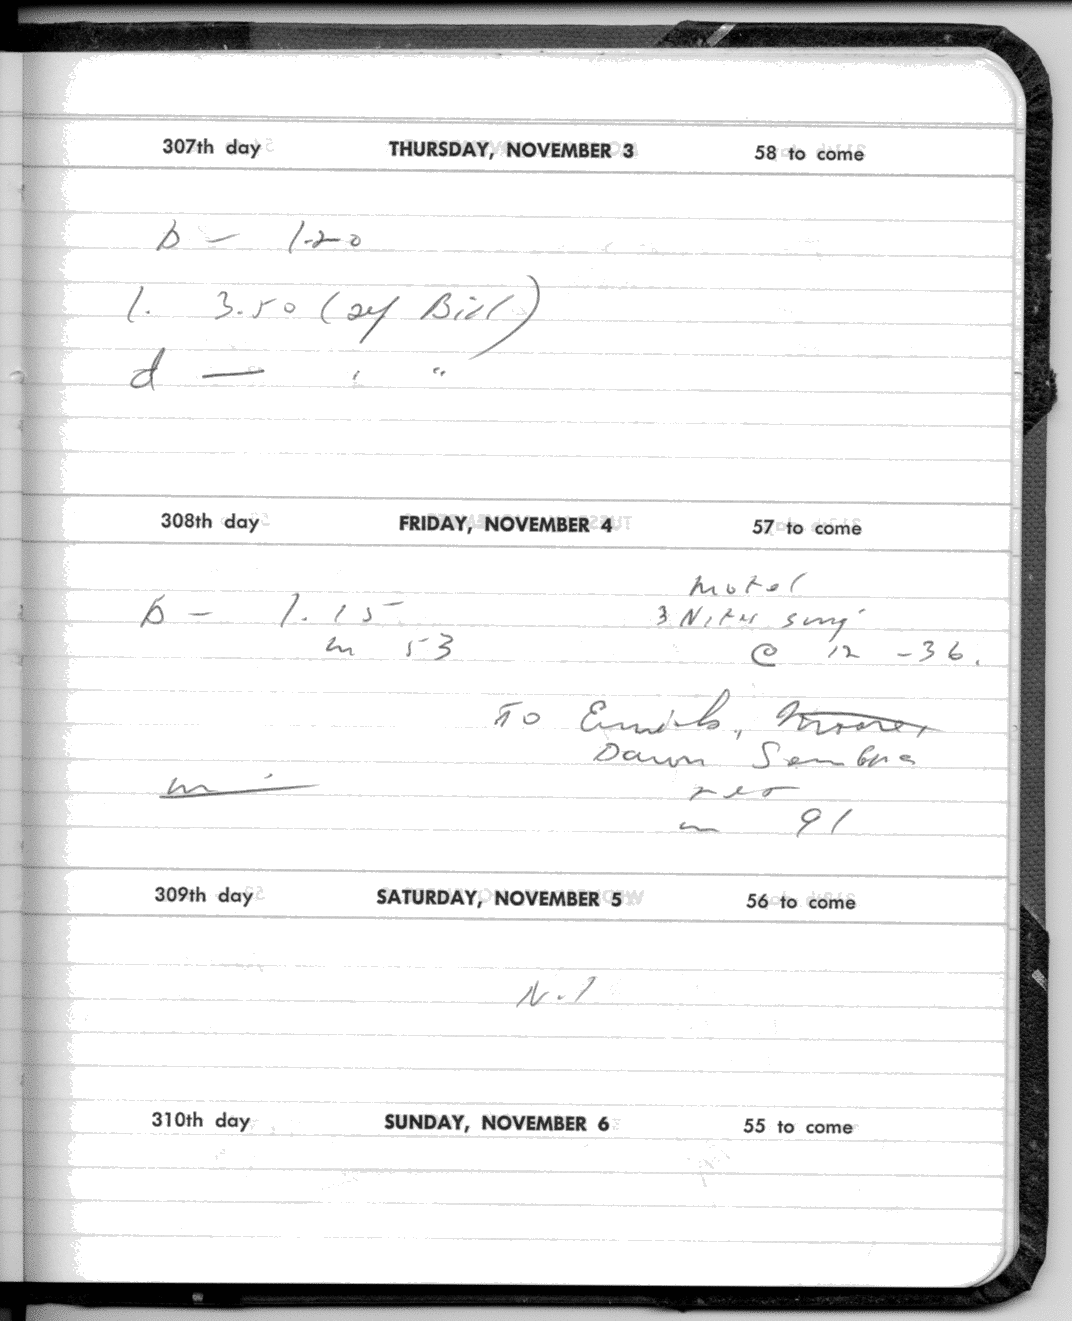 307th day THURSDAY, NOVEMBER 3 58 to come
b - 1.20
l. 3.50 (of Bill)
d — " "
308th day FRIDAY, NOVEMBER 4 57 to come
motel
b - 1.15 3 Nites
m 53 @ 12 - 36.
To
Dawn
m 91
309th day SATURDAY, NOVEMBER 5 56 to come
310th day SUNDAY, NOVEMBER 6 55 to come